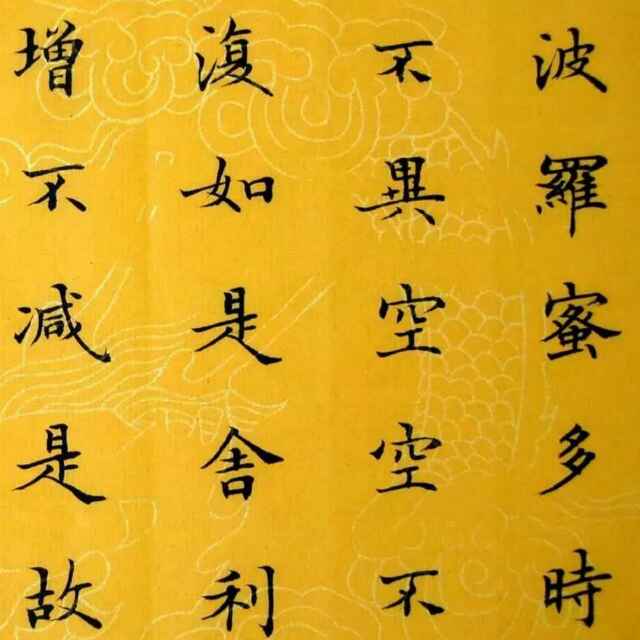 波羅蜜多時
不異空空不
復如是舍利
增不減是故